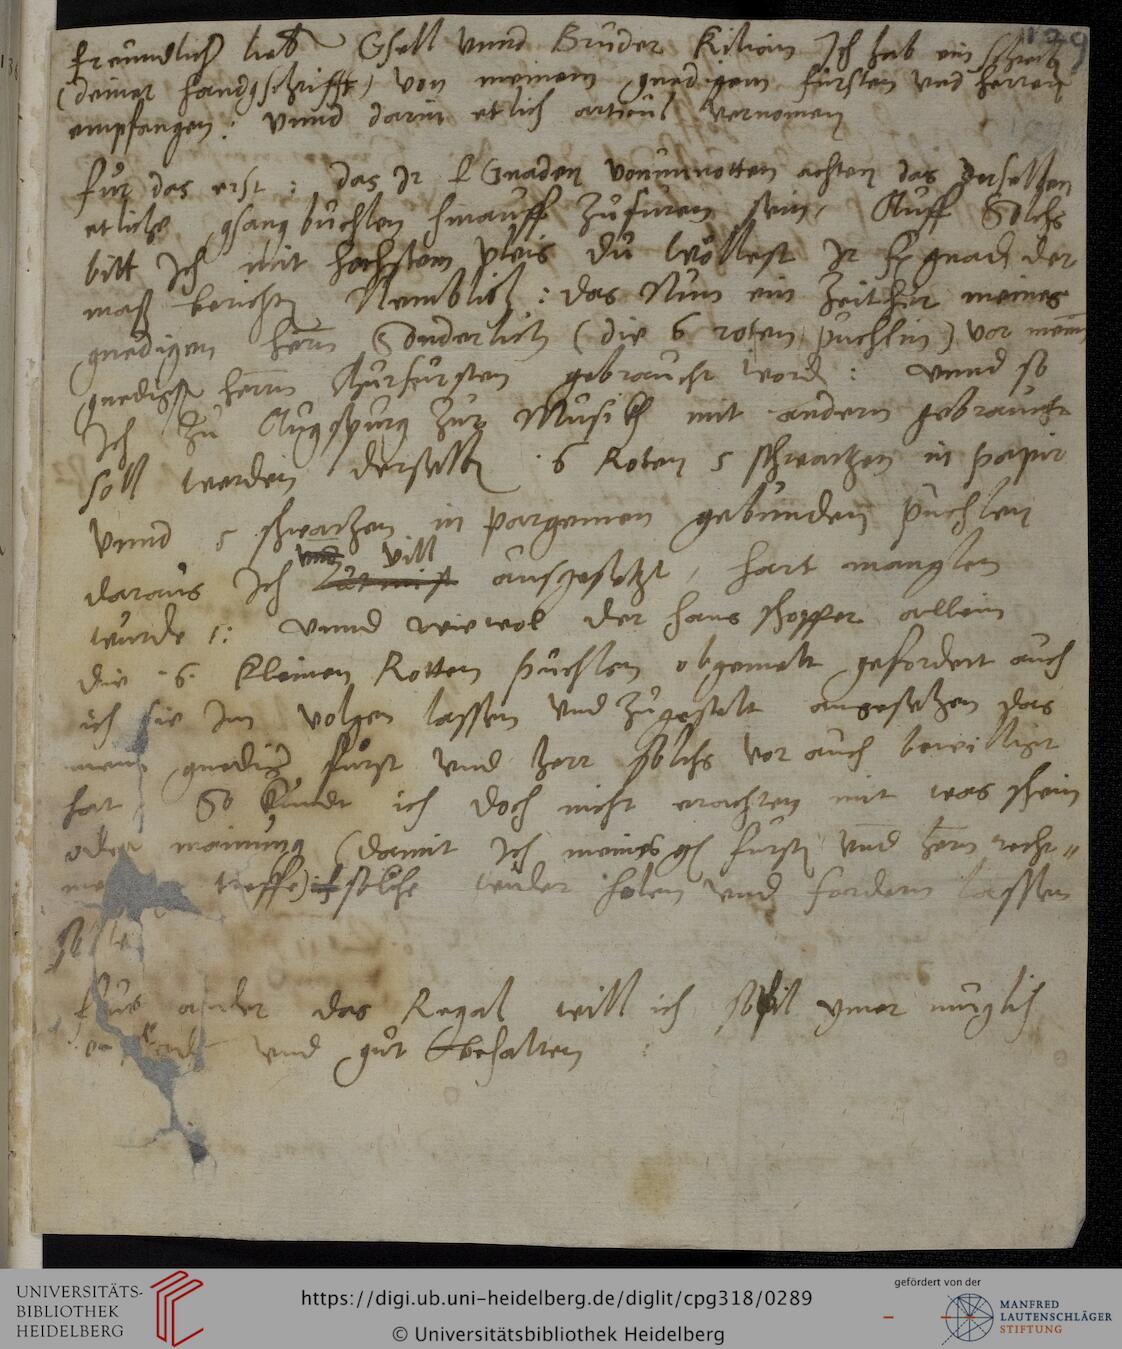 129
freundlich lieb Gsell vnnd Bruder Kilian Ich hab ein schreib
(deiner handgschrifft) von meinem gnedigen fursten vnd herren
empfangen: vnnd darin etlich articul vernomen
fur das erst: das Ir f Gnaden vonnnotten achten das derselben
etliche gsang buchlen hinauff zufuren sein, Auff Solchs
bitt Ich mit hochstem vleis du wöllest Ir f gnad der
maß berichten Nemblich: das Nun ein Zeit her meines
gnedigen herrn Sonderlich (die 6 roten puchlin) vor meim
gnedigsten herrn Churfursten gebraucht word: vnnd so
Ich zu Augspurg zur Musikh mit andern gebraucht
soll werden derselben 6 Roten 5 schwartzen in papir
vnnd 5 schwartzen in pargemen gebunden puchlen
vill
daraus Ich ausgesetzt, hart manglen
wurde: vnnd wiewol der hans schopffer allein
die 6 kleinen Rotten puchlen obgemelt gefordert auch
ich sie Im volgen lassen vnd zugestelt angesehen das
mein gnedig furst vnd herr solchs vor auch bewilligt
hat So kundt ich doch nicht erachten mit was schein
oder mainung (damit Ich meines gn fursten vnd herrn recht=
treffe) solche wider holen vnd fordern lassen
solle
furs ander das Regal will ich sovil ymer muglich
vnd gut behalten
UNIVERSITÄTS-
BIBLIOTHEK
HEIDELBERG
https://digi.ub.uni-heidelberg.de/diglit/cpg318/0289
© Universitätsbibliothek Heidelberg
gefördert von der
MANFRED
LAUTENSCHLÄGER
STIFTUNG